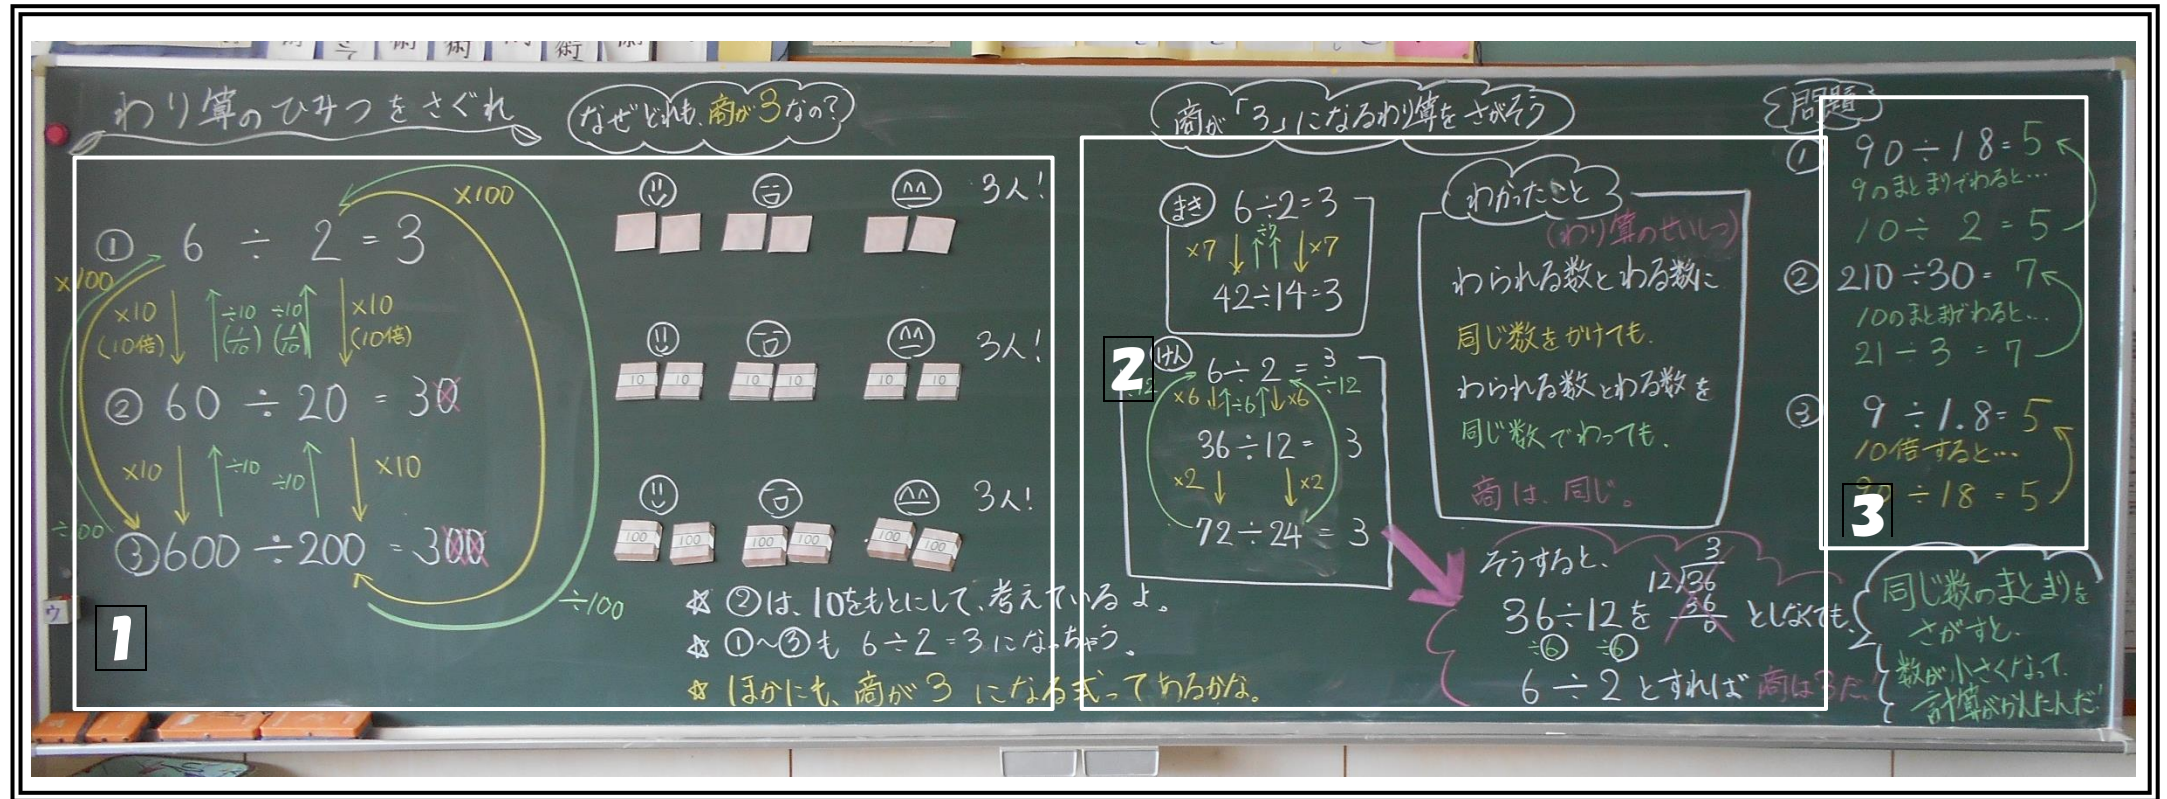 わり算のひみつをさぐれ
なぜどれも、商が3なの?
×100
① 6 ÷ 2 = 3
×100
×10 ÷10 ÷10 ×10
(10倍) (1/10) (1/10) (10倍)
② 60 ÷ 20 = 30
×10 ÷10 ÷10 ×10
÷100
③ 600 ÷ 200 = 300
÷100
1
3人!
10 10 10 10 10 10
3人!
100 100 100 100 100 100
3人!
☆ ②は、10をもとにして、考えているよ。
☆ ①~③も 6÷2=3になっちゃう。
☆ ほかにも、商が3 になる式ってあるかな。
商が「3」になるわり算をさがそう
まき 6÷2=3
×7 ÷7 ×7
42÷14=3
2
けん 6÷2=3
÷12 ×6 ÷6 ×6 ÷12
36÷12=3
×2 ×2
72÷24=3
わかったこと
(わり算のせいしつ)
わられる数とわる数に
同じ数をかけても、
わられる数とわる数を
同じ数でわっても、
商は、同じ。
そうすると、
3
12)36
36
0
36÷12を としなくても、
÷6 ÷6
6÷2とすれば 商は3だ!
問題
① 90÷18=5
9のまとまりでわると…
10÷2=5
② 210÷30=7
10のまとまりでわると…
21÷3=7
③ 9÷1.8=5
10倍すると…
90÷18=5
3
同じ数のまとまりを
さがすと、
数が小さくなって、
計算がかんたんだ!
ウ